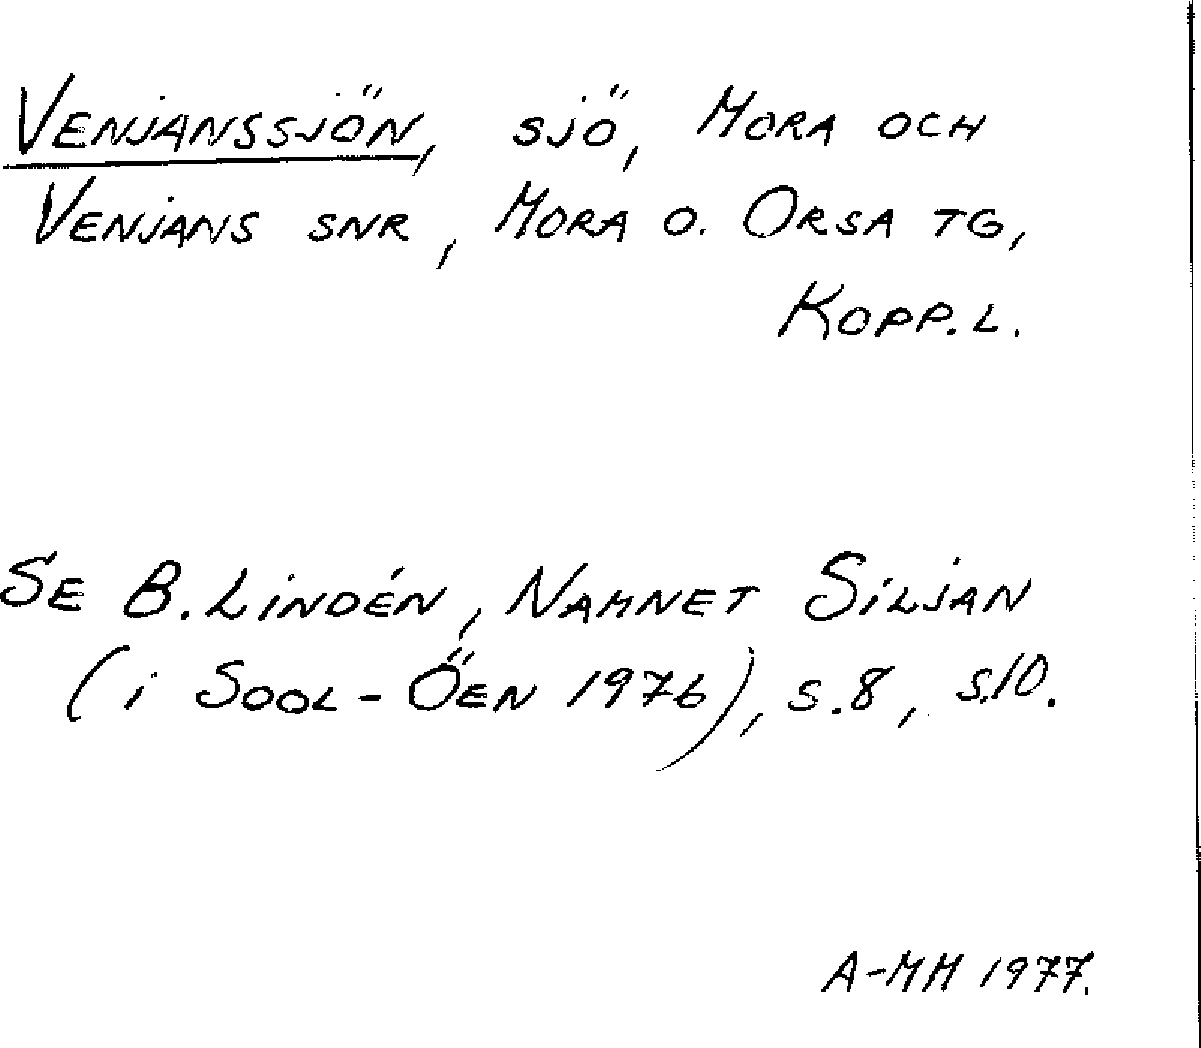 VENJANSSJÖN, SJÖ, MORA OCH
VENJANS SNR, MORA O. ORSA TG,
KOPP. L.
SE B. LINDÉN, NAMNET SILJAN
(i SOOL-ÖEN 1976), S. 8, S. 10.
A-MM 1977.